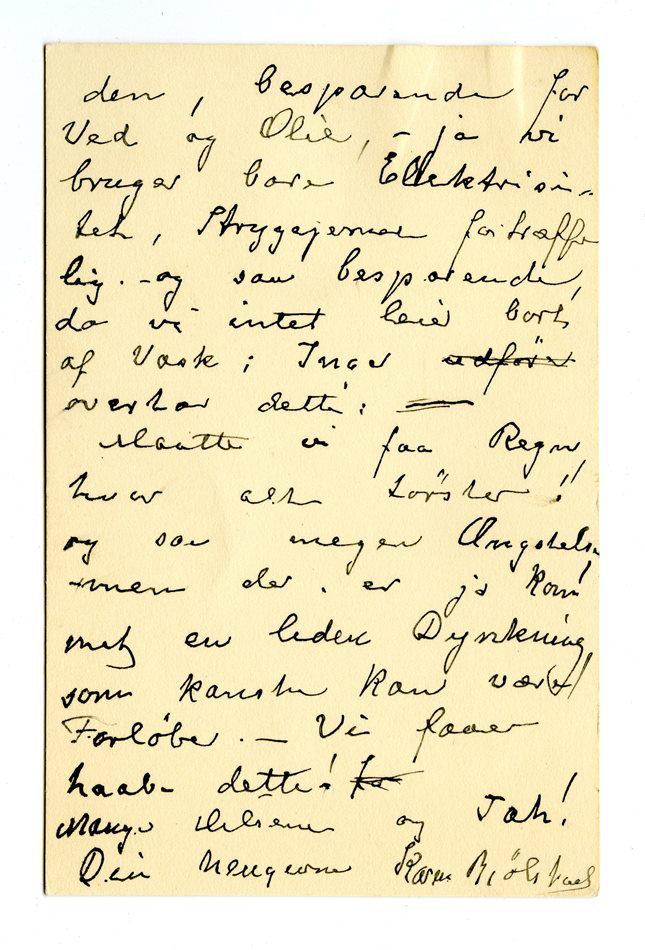 den, besparende for
Ved og Olie, - ja vi
bruger bare Ellektrisi-
tet, Strygejernene fortræffe
lig. - og saa besparende,
da vi intet leie bort
af Vask; Inger udføre
overtar dette: —
Maatte vi faa Regn,
hvor alt törster!!
og saa megen Ængstelse
- men der er ja kom
met en liden Dynkning
som kanske kan være
Forlöber. — Vi faaer
haabe dette! fo
Mange Hilsener og Tak!
Din hengivne Karen